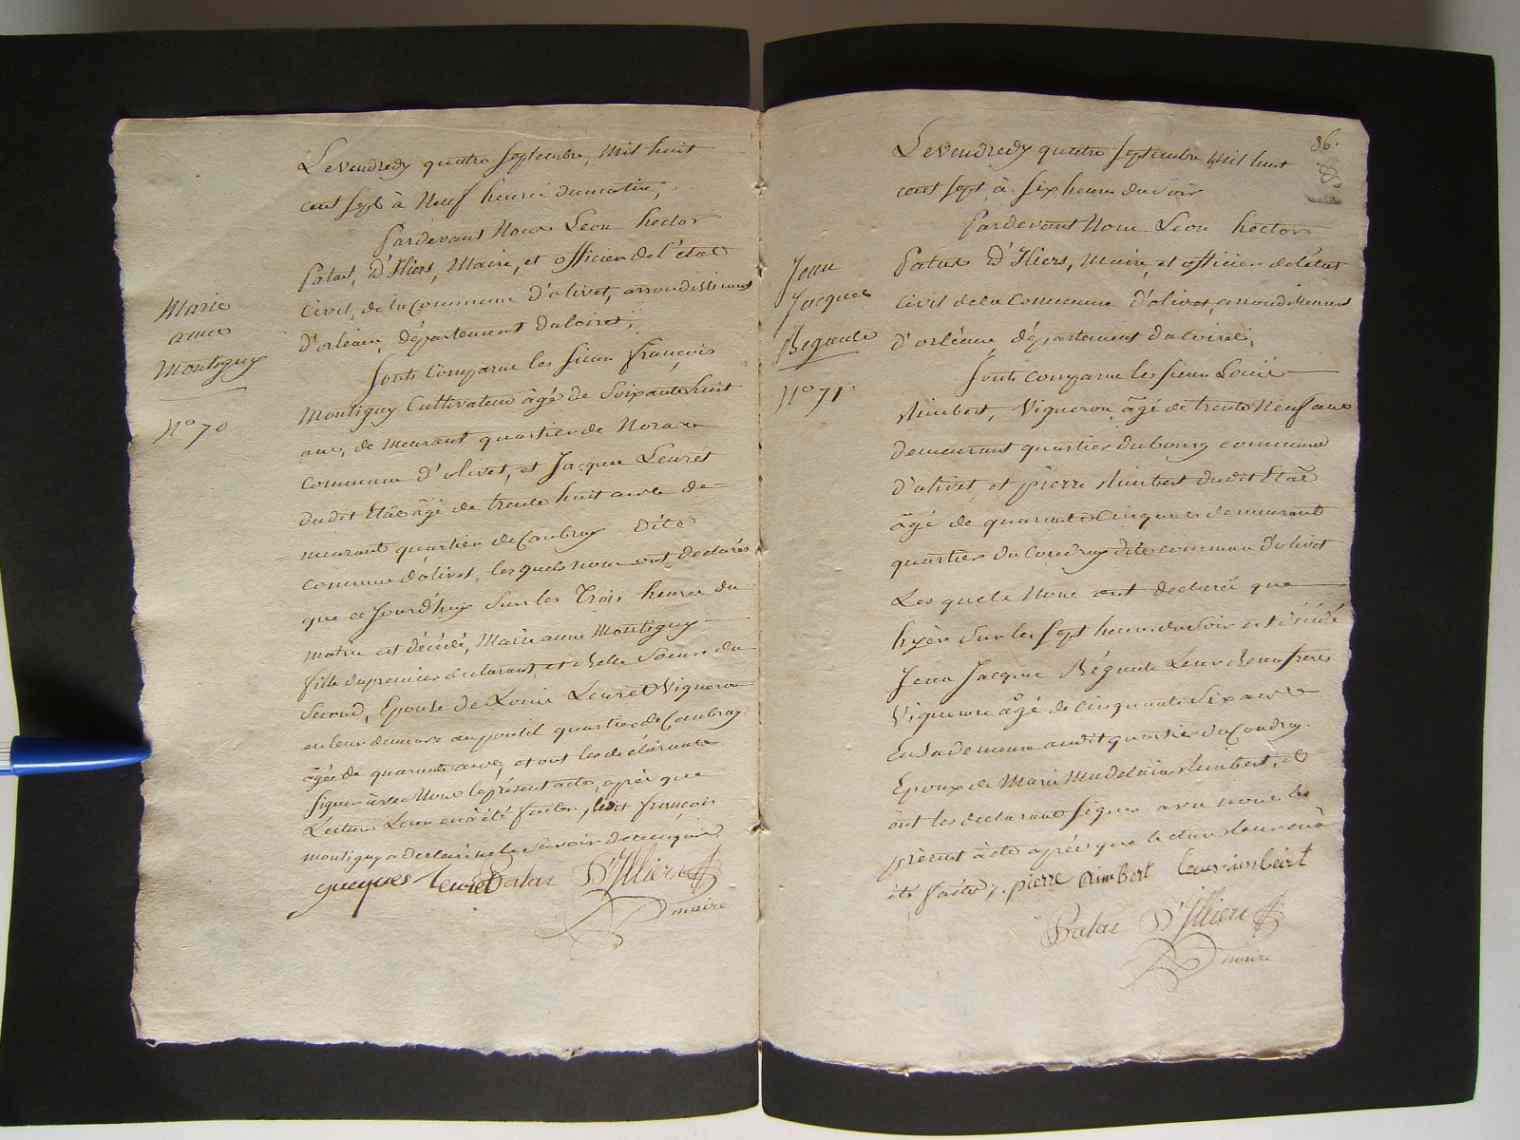 Le vendredy quatre Septembre, mil huit
cent sept à Neuf heures du matin,
pardevant Nous Leon hector
Patas, D'Illiers, Maire, et officier de l'état
Civil, de la Commune d'olivet, arrondissement
D'orléans, département du loiret,
sont Comparus les sieurs françois
Montigny Cultivateur âgé de Soixante huit
ans, demeurant quartier de
commune d'olivet, et Jacques Leuret
dudit Etat âgé de trente huit ans de-
meurant quartier de Caubray Dite
commune d'olivet, lesquels nous ont déclarés
que ce Jourd'huy sur les Trois heures du
matin est décédé, Marie anne Montigny
fille du premier déclarant, et Belle Soeur du
Second, Epouse de Louis Leuret Vigneron
en leur demeure au quartier de Caubray
âgée de quarante ans, et ont les déclarants
signés avec Nous le présent acte, après que
Lecture Leur en a été faite, ledit françois
montigny a declaré ne le savoir de ce enquis
jacques leuret Patas D'Illiers
maire
Marie
anne
Montigny
N° 70
86.
Le vendredy quatre Septembre mil huit
cent sept, à Six heures du soir
pardevant Nous Leon hector
Patas D'Illiers, maire, et officier de l'état
Civil de la Commune d'olivet, arrondissement
d'orléans, département du loiret,
sont comparus les sieurs Louis
Rimbert, Vigneron, âgé de trente Neuf ans
demeurant quartier du bourg commune
d'olivet, et pierre Rimbert dudit Etat
âgé de quarante Cinq ans demeurant
quartier du Coudray dite commune d'olivet
Lesquels Nous ont declaré que
hyer sur les sept heures du Soir est décédé
Jean Jacques Bégaude Leur Beaufrere
Vigneron âgé de cinquante Six ans
En sa demeure audit quartier du Coudray.
Epoux de Marie Madelaine Rimbert, et
ont les declarants signés avec nous le
présent acte après que lecture leur en a
été faite, pierre Rimbert Louis rimbert
Patas D'Illiers
maire
Jean
Jacques
Begaude
N° 71.